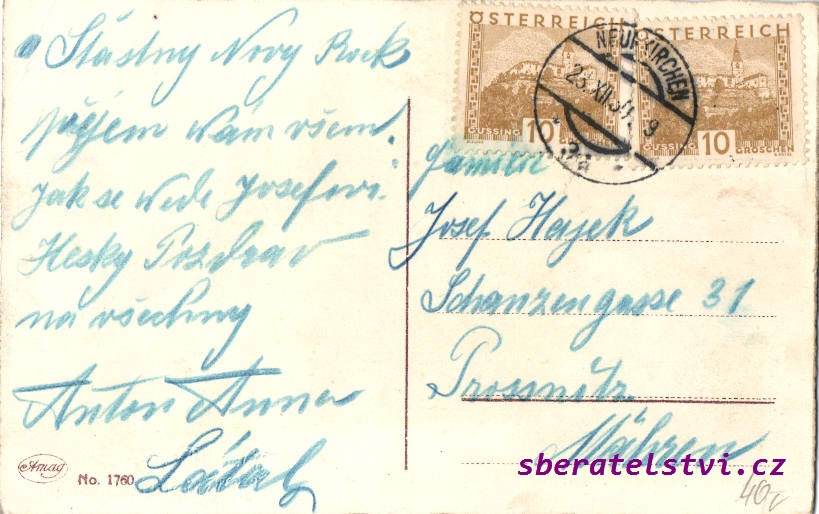 Stástny Novy Rock
přejem wám všem.
Jak se wede Josefovi.
Hesky Pozdrav
na všechny
Anton Anna
Amag
No. 1760
ÖSTERREICH
GÜSSING
10
GROSCHEN
ÖSTERREICH
GÜSSING
10
GROSCHEN
NEUNKIRCHEN
3a
Familie
Josef Hajek
Schanzengasse 31
Prossnitz
Mähren
sberatelstvi.cz
40,-